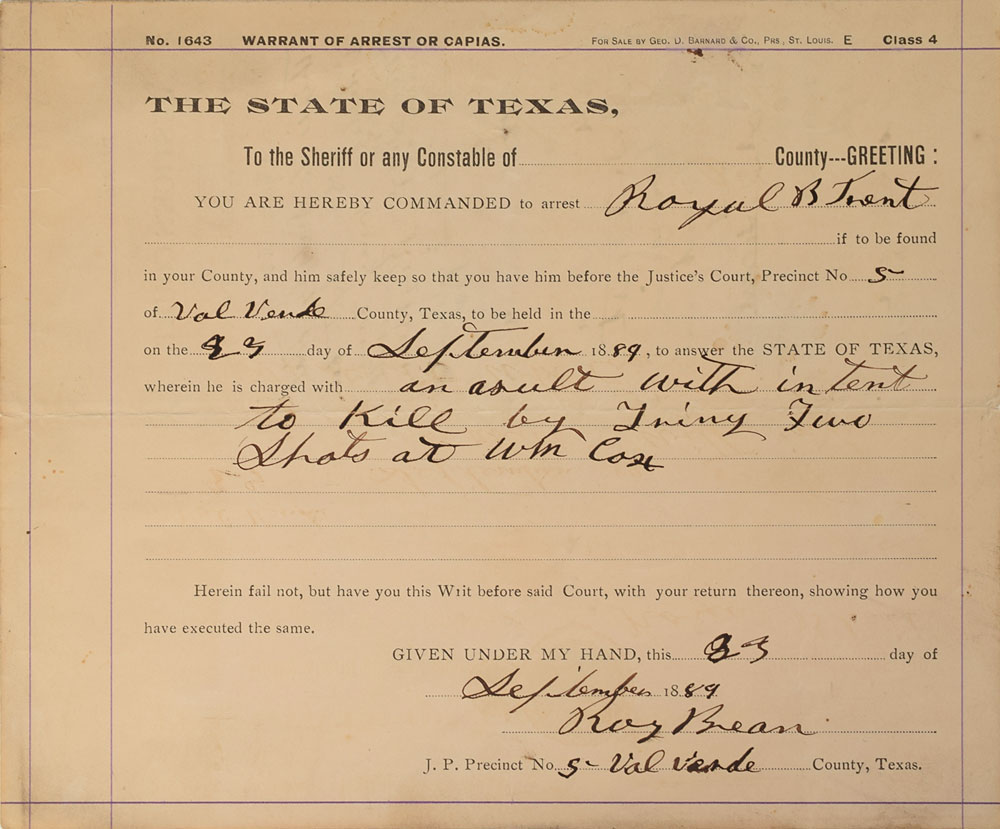 No. 1643 WARRANT OF ARREST OR CAPIAS. FOR SALE BY GEO. D. BARNARD & CO., PRS, ST. LOUIS. E Class 4
THE STATE OF TEXAS,
To the Sheriff or any Constable of County---GREETING:
YOU ARE HEREBY COMMANDED to arrest Royal B Trent
if to be found
in your County, and him safely keep so that you have him before the Justice's Court, Precinct No 5
of Val Verde County, Texas, to be held in the
on the day of September 1889, to answer the STATE OF TEXAS,
wherein he is charged with an asult with intent
to Kill by Friny Two
Shots at Wm Cox
Herein fail not, but have you this Writ before said Court, with your return thereon, showing how you
have executed the same.
GIVEN UNDER MY HAND, this day of
September 1889
Roy Bean
J. P. Precinct No. 5 Val Verde County, Texas.